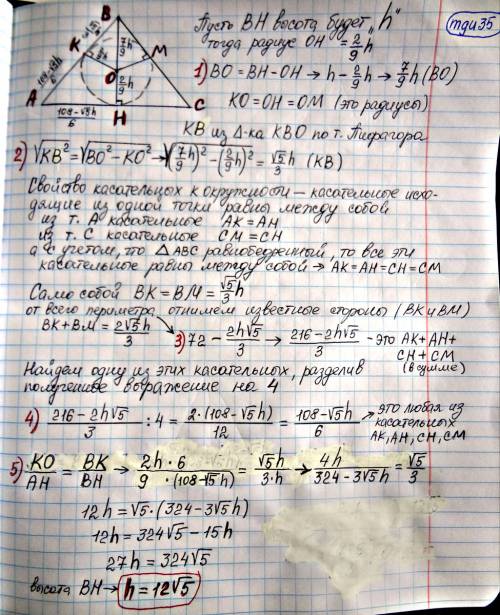 Пусть BH высота будет „h"
тогда радиус OH = 2/9 h
тди35
1) BO = BH - OH → h - 2/9 h → 7/9 h (BO)
KO = OH = OM (это радиусы)
KB из Δ-ка KBO по т. Пифагора
B
K
7/9 h
M
O
2/9 h
A
H
C
108-√5h / 6
2) √KB² = √BO² - KO² → √(7/9 h)² - (2/9 h)² = √5/3 h (KB)
Свойство касательных к окружности – касательные исхо-
дящие из одной точки равны между собой
из т. A касательные AK = AH
из т. C касательные CM = CH
а с учетом, что △ABC равнобедренный, то все эти
касательные равны между собой → AK = AH = CH = CM
Само собой BK = BM = √5/3 h
от всего периметра отнимем известные стороны (BK и BM)
BK + BM = 2√5h/3
3) 72 - 2h√5/3 → 216 - 2h√5 / 3 - это AK + AH +
CH + CM
(в сумме)
Найдем одну из этих касательных, разделив
полученное выражение на 4
4) 216 - 2h√5 / 3 : 4 = 2·(108 - √5h) / 12 = 108 - √5h / 6 → это любая из
касательных
AK, AH, CH, CM
5) KO/AH = BK/BH → 2h · 6 / 9 · (108 - √5h) = √5h / 3·h → 4h / 324 - 3√5h = √5/3
12h = √5 · (324 - 3√5h)
12h = 324√5 - 15h
27h = 324√5
высота BH → h = 12√5